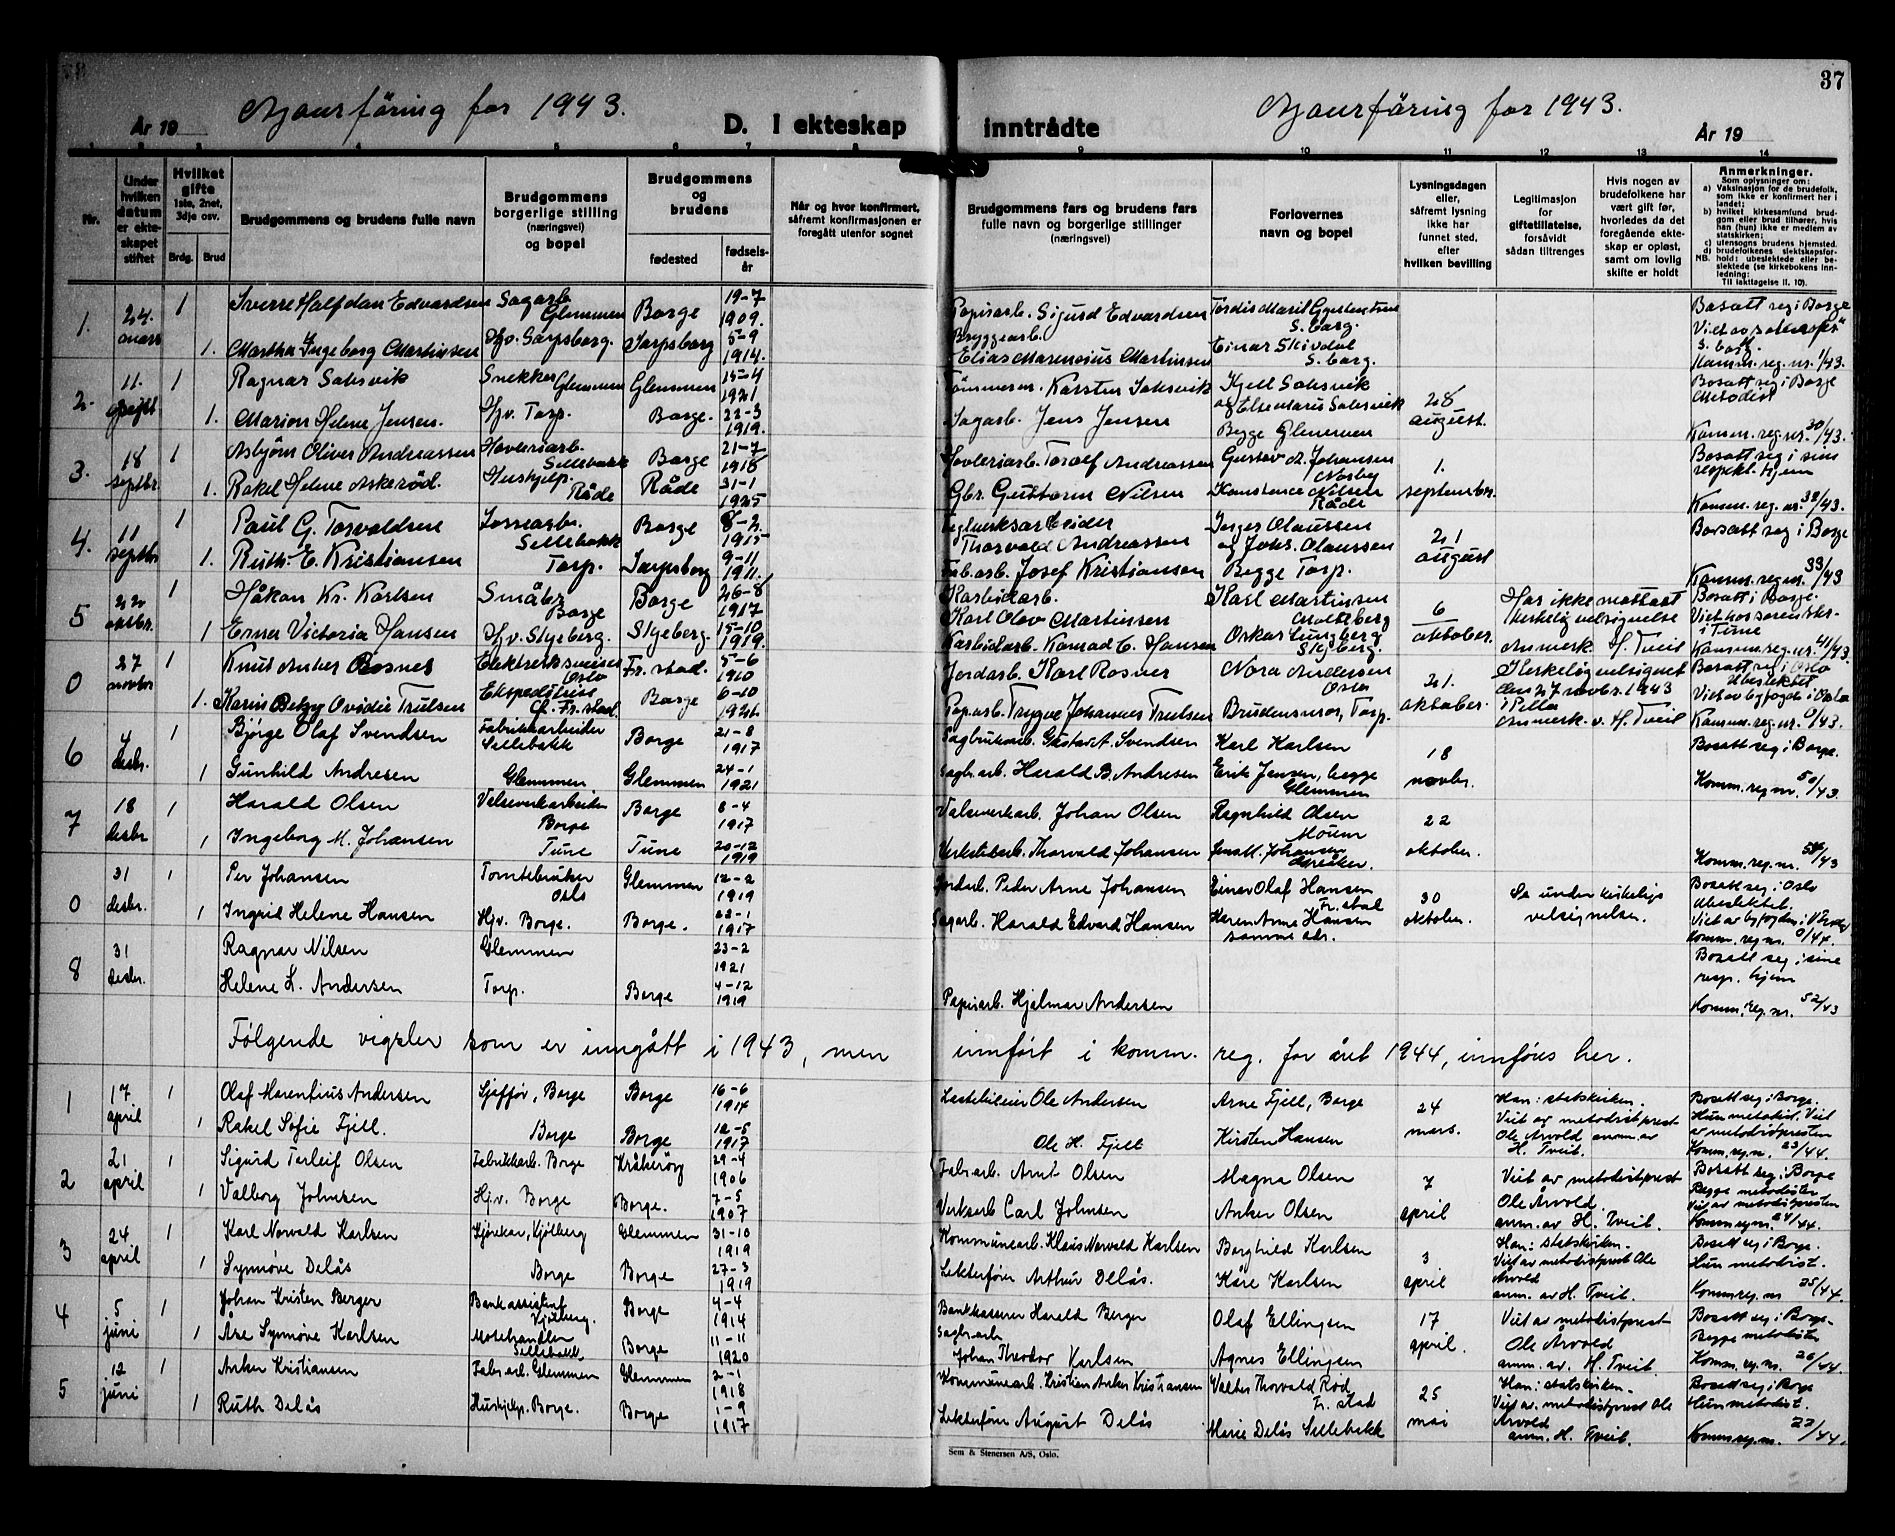 37
Ajourføring for 1943.
År 19
D. I ekteskap
inntrådte
Ajourføring for 1943.
År 19
Nr.
Under hvilken datum er ekteskapet stiftet
Hvilket gifte 1ste, 2net, 3dje osv.
Brdg. Brud
Brudgommens og brudens fulle navn
Brudgommens borgerlige stilling (næringsvei) og bopel
Brudgommens og brudens
fødested
fødsels-år
Når og hvor konfirmert, såfremt konfirmasjonen er foregått utenfor sognet
Brudgommens fars og brudens fars fulle navn og borgerlige stillinger (næringsvei)
Forlovernes navn og bopel
Lysningsdagen eller, såfremt lysning ikke har funnet sted, efter hvilken bevilling
Legitimasjon for giftetillatelse, forsåvidt sådan tiltrenges
Hvis nogen av brudefolkene har vært gift før, hvorledes da det foregående ekteskap er opløst, samt om lovlig skifte er holdt
Anmerkninger.
Som oplysninger om:
a) Vaksinasjon for de brudefolk, som ikke er konfirmert her i landet;
b) hvilket kirkesamfund brudgom eller brud tilhører, hvis han (hun) ikke er medlem av statskirken;
c) utensogns brudens hjemsted.
d) brudefolkenes slektskapsforhold: ubeslektede eller beslektede (se kirkebokens innledning:
NB.
Til iakttagelse II. 10).
1. 24. mars 1 Sverre Halfdan Edvardsen Sagarb. Glemmen Borge 19-7 1909. Papirarb. Sigurd Edvardsen S.borg. Bosatt seg i Borge
1. Martha Ingeborg Martinsen Hv. Sarpsborg. Sarpsborg 5-9 1914. Bryggearb. Elias Marensius Martinsen Einar Skivdal S. borg. Komm. reg. nr. 1/43.
2. 11. septbr 1 Ragnar Solsvik Snekker Glemmen Glemmen 15-4 1921 Tømmerm. Karsten Solsvik Kjell Solsvik 28 august. Bosatt seg i Borge Metodist
1. Marion Helene Jensen. Hv. Torp. Borge. 22-3 1919. Sagarb. Jens Jensen og Else Marie Solsvik Begge Glemmen Komm. reg. nr. 30/43.
3. 18 septbr. 1 Asbjørn Oliver Andreassen Høvleriarb. Sellebakk Borge 21-7 1918 Høvleriarb. Toralf Andreassen Gustav A. Johansen 1. september. Bosatt seg i sine respekt. hjem
1. Rakel Helene Askerød. Hushjelp. Råde Råde 31-1 1925 Gbr. Guttorm Nilsen Konstance Nilsen Råde Komm. reg. nr. 32/43.
4. 11 septbr 1 Paul G. Torvaldsen Lossearb. Sellebakk Borge 8-2 1915 Teglverksarbeider Thorvald Andreassen Jørger Olaussen 21 august Bosatt seg i Borge
1. Ruth. E. Kristiansen Torp. Sarpsborg 9-11 1911. Fab.arb. Josef Kristiansen og Johs. Olaussen Begge Torp. Komm. reg. nr. 33/43
5 22 oktbr. 1 Håkon Kr. Karlsen Småbr. Borge Borge 26-8 1917 Karbidarb. Karl Olov Martinsen Karl Martinsen Moltteberg 6 oktober. Har ikke mottatt kirkelig velsignelse Bosatt i Borge.
1 Erna Victoria Hansen Hv. Skjeberg. Skjeberg. 15-10 1919. Karbidarb. Konrad C. Hansen Oskar Ljungberg Skjeberg. Anmerk. H. Tveit i Tune Komm. reg. nr. 41/43.
0 27 novbr 1 Knut Anker Rosnes Elektrisk sveiser Oslo Fr.stad. 5-6 1910 Jordarb. Karl Rosnes Nora Andersen Oslo 21. oktober. Kirkelig velsignet den 27 novbr. 1943 i Pella Bosatt seg i Oslo Ubeslektet
1. Karin Betzy Ovidie Trulsen Ekspeditrise Gl. Fr.stad. Borge 6-10 1921 Pap.arb. Trygve Johannes Trulsen Brudens mor, Torp. anmerk. v. H. Tveit Viet av byfogden i Oslo Komm. reg. nr. 0/43.
6 4 desbr. 1 Bjørge Olaf Svendsen Fabrikkarbeider Sellebakk Borge 21-8 1917 Sagbrukarb. Gustav A. Svendsen Karl Karlsen 18 novbr. Bosatt seg i Borge.
1 Gunhild Andresen Glemmen Glemmen 24-1 1921 Sagb.arb. Harald B. Andresen Erik Jensen, begge Glemmen Komm. reg nr. 50/43.
7 18 desbr 1 Harald Olsen Valseverkarbeider Borge Borge 8-4 1917 Valseverkarb. Johan Olsen Ragnhild Olsen Moum 22 oktober.
1 Ingeborg M. Johansen Tune Tune 20-12 1919 Verkstedarb. Thorvald Johansen Jens M. Johansen Greåker. Komm. reg. nr. 51/43
0 31 desbr. 1 Per Johansen Tomtebruker Oslo Glemmen 12-2 1919 Jordarb. Peder Arne Johansen Einar Olaf Hansen Fr.stad 30 oktober. Se under kirkelig velsignelsen. Bosatt seg i Oslo Ubeslektet.
1 Ingrid Helene Hansen Hjv. Borge. Borge. 22-1 1917 Sagarb. Harald Edvard Hansen Karen Anne Hansen samme adr. Komm. reg nr. 0/44.
8 31 desbr. Ragnar Nilsen Glemmen 23-2 1921 Bosatt seg i sine resp. hjem
Helene L. Andersen Torp. Borge 4-12 1919 Papirarb. Hjalmar Andersen Komm. reg. nr. 52/43
Følgende vigsler som er inngått i 1943, men innført i komm. reg. for året 1944, innføres her.
1 17 april 1 Olaf Marenfius Andersen Sjåfør, Borge Borge 16-6 1914 Ole Andersen Arne Fjell, Borge 24 mars. Han: statskirken. Viet av metodistprest Bosatt seg i Borge. Hun metodist. Viet
1 Rakel Sofie Fjell. Borge Borge 12-5 1917 Ole H. Fjell Kirsten Hansen Ole Arvold anm. av H. Tveit. av metodistpresten Komm. reg. nr. 23/44.
2 21 april 1 Sigurd Torleif Olsen Fabrikkarb. Borge Kråkerøy 29-4 1906 Fab.arb. Arnt Olsen Magna Olsen 7 april Viet av metodistprest Bosatt seg i Borge Begge metodister
1 Valborg Johnsen Hjv. Borge Borge. 7-5 1907 Verksarb Carl Johnsen Anker Olsen Ole Arvold. anm. av H. Tveit. Viet av metodistpresten Komm reg nr. 24/44.
3 24 april 1 Karl Norvald Karlsen Kjørekar, Kjølberg Glemmen 31-10 1919 Kommunearb. Klaus Norvald Karlsen Borghild Karlsen 3 april Han: statskirken. Viet av metodistprest Ole Bosatt seg i Borge. Hun metodist.
1 Synnøve Delås Borge Borge 27-3 1919 Lekterfører Arthur Delås. Kåre Karlsen Arvold anm. av H. Tveit. Komm reg. nr 25/44.
4 5 juni 1 Johan Kristen Berger Bankassistent Kjølberg. Borge 4-4 1914 Bankkasserer Harald Berger Olaf Ellingsen 17 april. Viet av metodistprest Bosatt seg i Borge. Begge metodister
1 Åse Synnøve Karlsen Motehandler Sellebakk Borge 11-11 1920 Sagb.arb Johan Theodor Karlsen Agnes Ellingsen Ole Arvold anm. av. H. Tveit. Komm. reg. nr. 26/44.
5 12 juni 1 Anker Kristiansen Fabr.arb. Glemmen Glemmen 2-1 1918 Kommunearb. Kristian Anker Kristiansen Valter Thorvald Rød Fr. stad 25 mai Han: statskirken. Viet av metodistprest Ole Bosatt seg i Borge Hun metodist.
1 Ruth Delås Hushjelp. Borge. Borge 1-9 1917 Lekterfører August Delås Marie Delås Sellebakk Arvold anm. H. Tveit. Komm reg. nr. 27/44.
Sem & Stenersen A/S, Oslo.